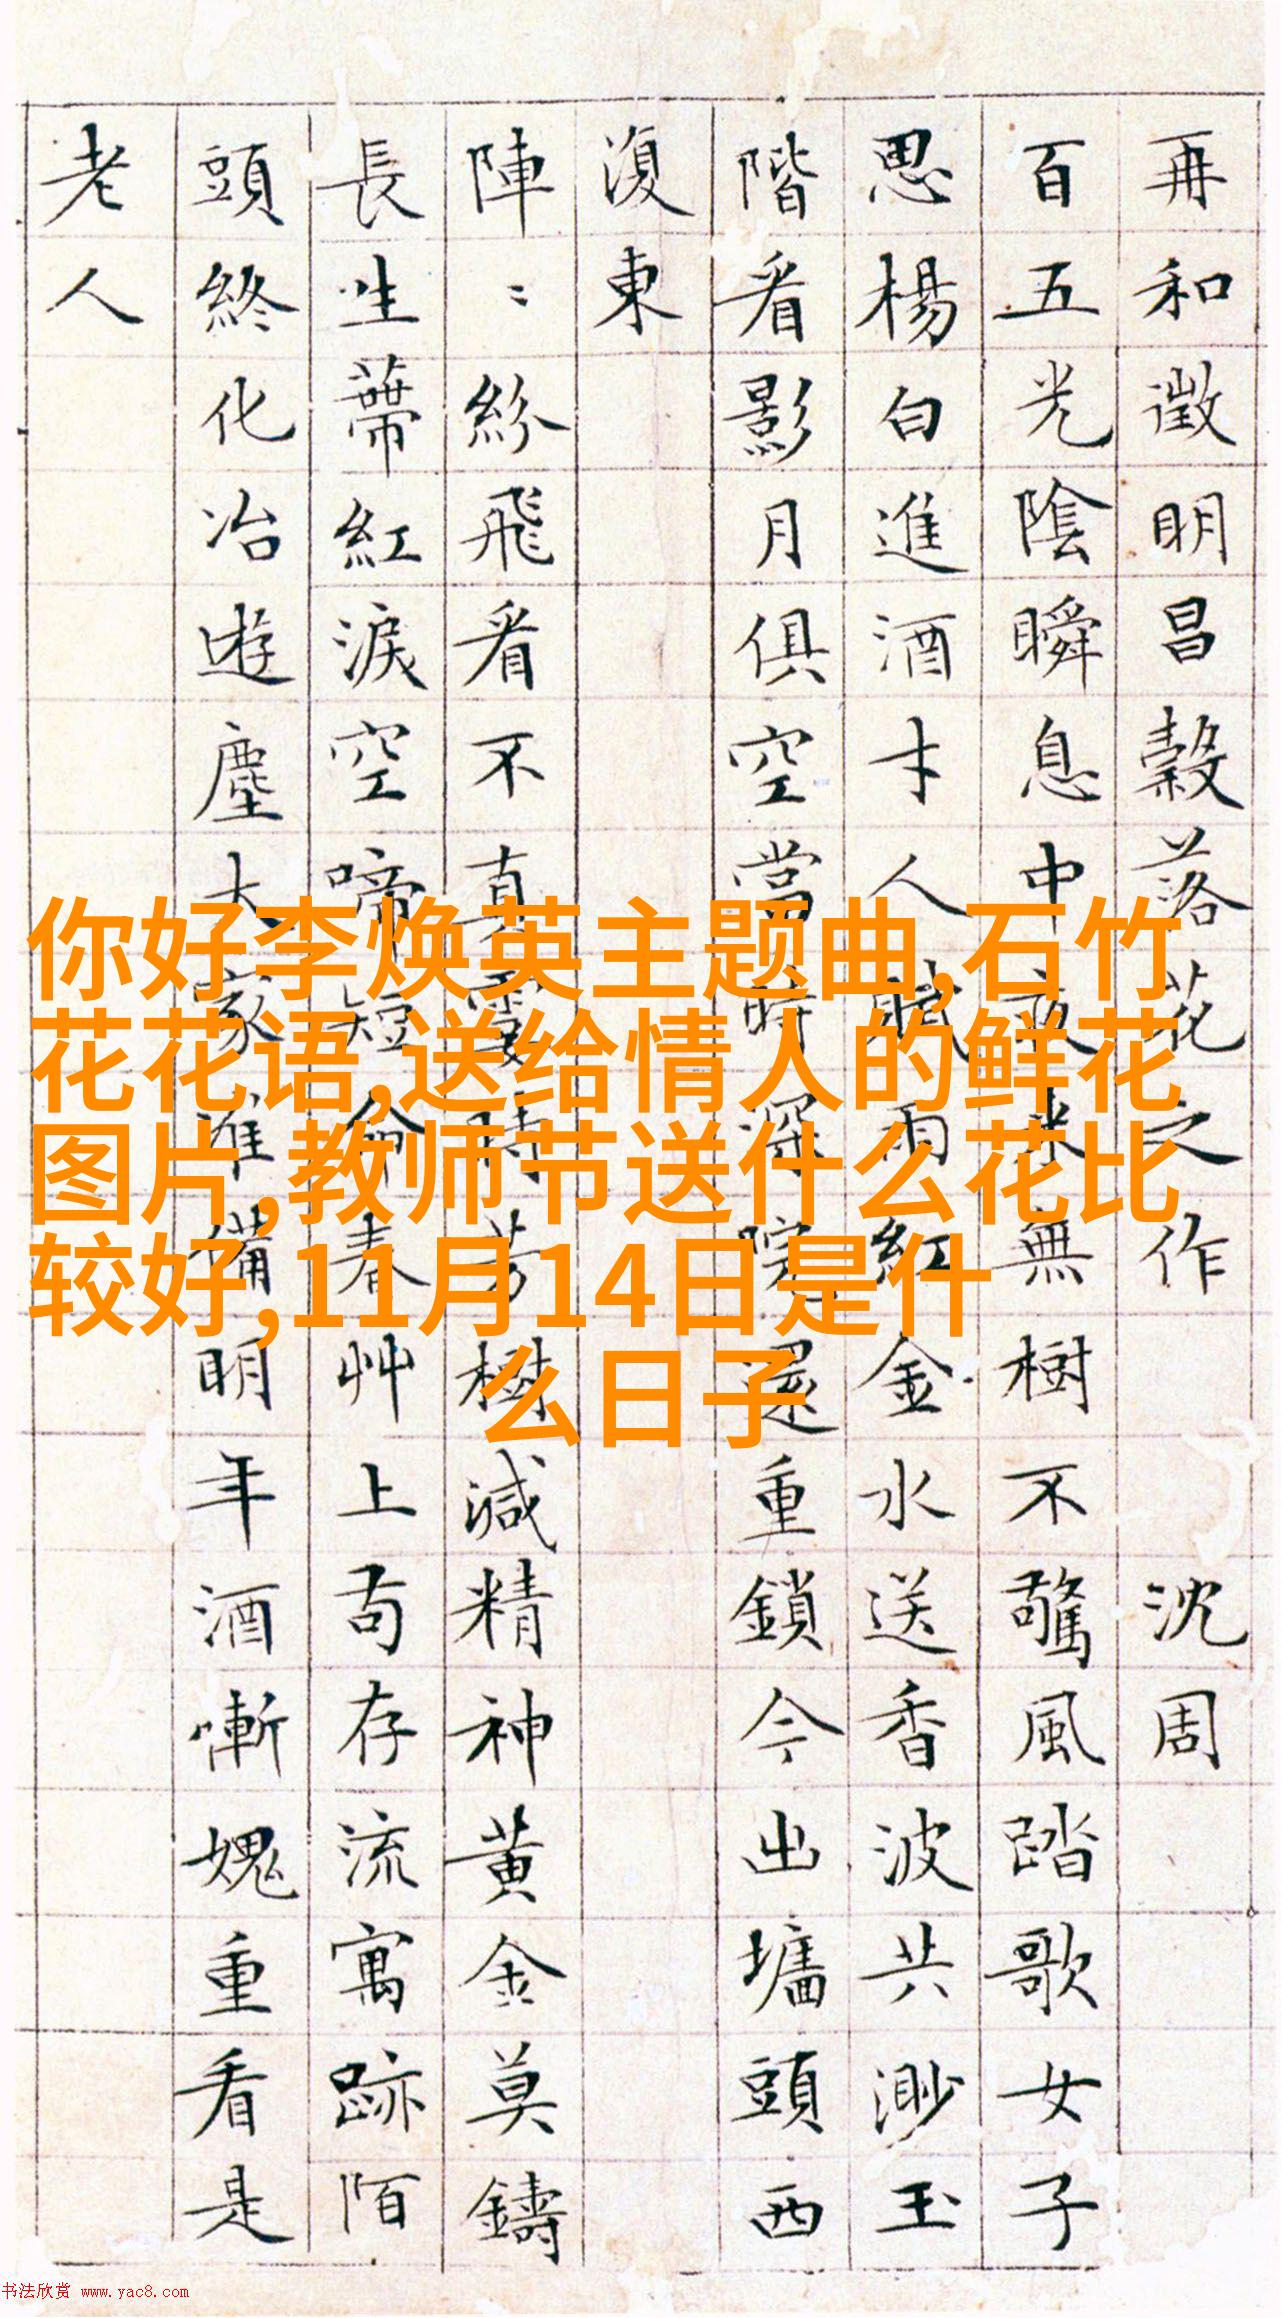 再和徵明昌穀落花之作 沈周
百五光陰瞬息中夜來無樹不驚風踏歌女子
思楊白進酒才人賦雨紅金水送香波共渺玉
階看影月俱空當時深院還重鎖今出墻頭西
復東
陣〻紛飛看不真霎時芳樹減精神黃金莫鑄
長生蔕紅淚空啼短命春艸上苟存流寓跡陌
頭終化冶遊塵大家准備明年酒慚媿重看是
老人
你好李焕英主题曲,石竹
花花语,送给情人的鲜花
图片,教师节送什么花比
较好,11月14日是什
么日子
书法欣赏 www.yac8.com